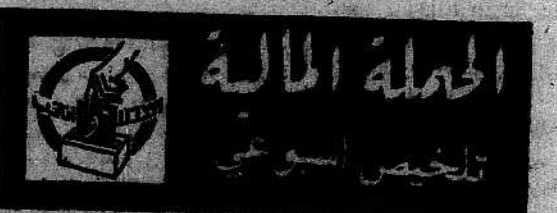 الحملة المالية
تلخيص اسبوعي